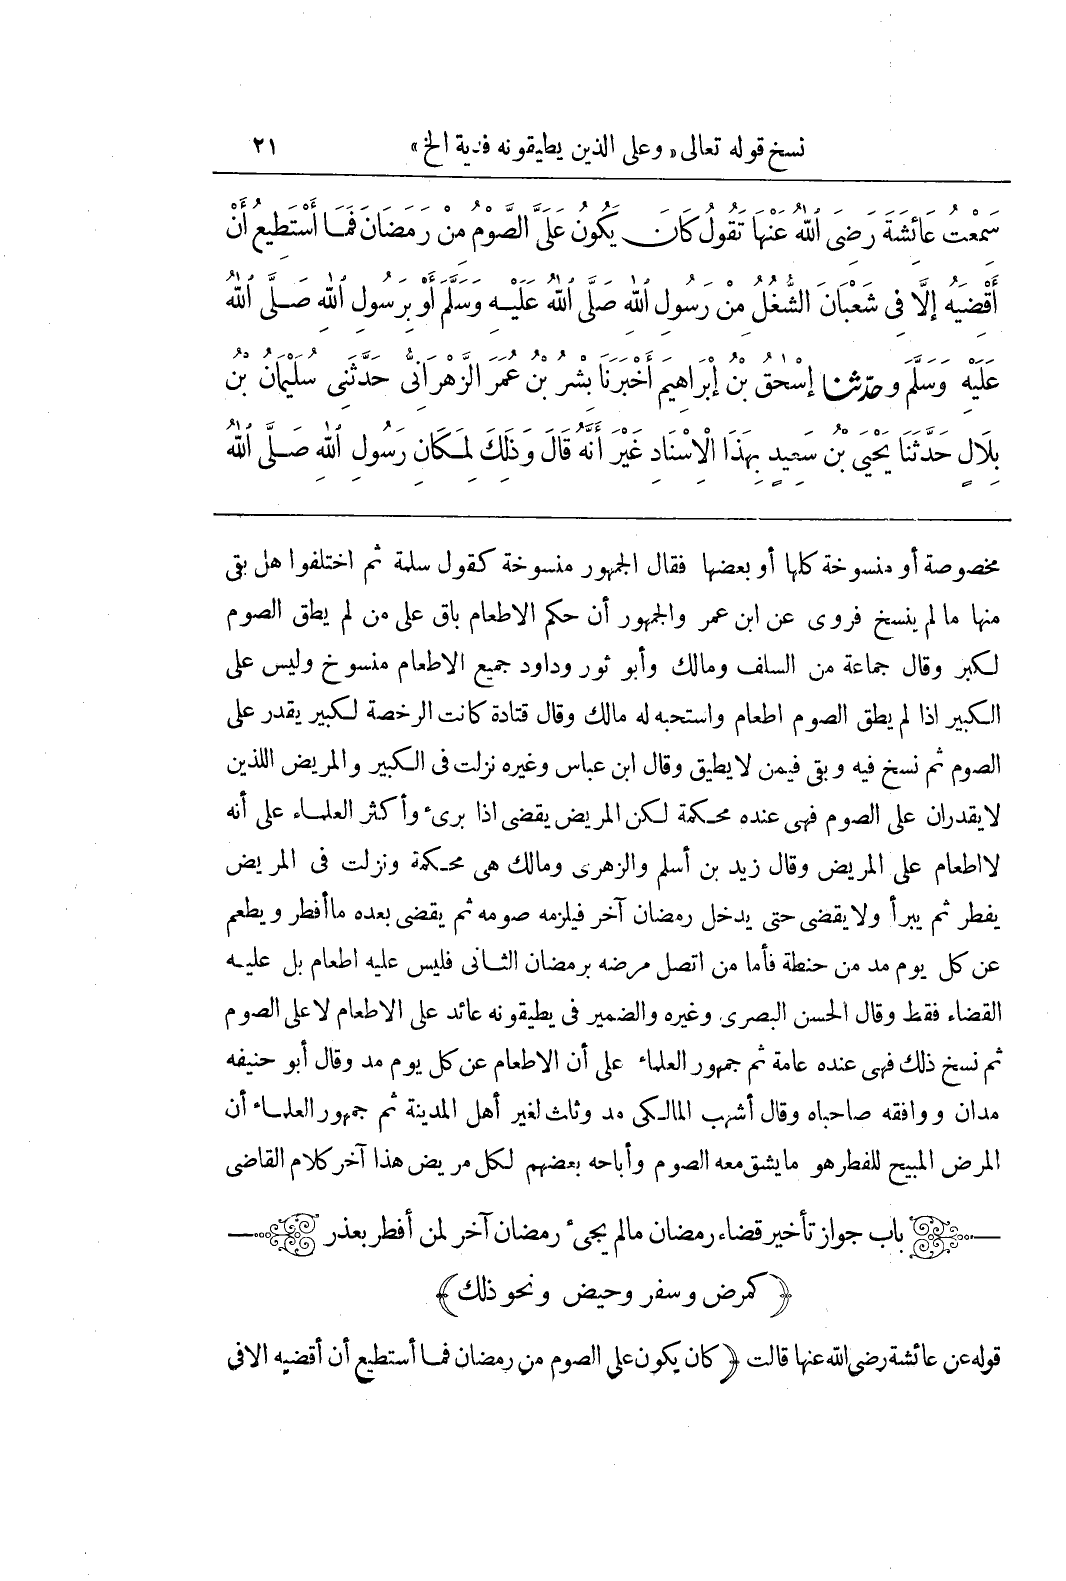 نسخ قوله تعالى «وعلى الذين يطيقونه فدية الخ» ٢١
سَمِعْتُ عَائِشَةَ رَضِىَ ٱللهُ عَنْهَا تَقُولُ كَانَ يَكُونُ عَلَىَّ الصَّوْمُ مِنْ رَمَضَانَ فَمَا أَسْتَطِيعُ أَنْ
أَقْضِيَهُ إِلَّا فِى شَعْبَانَ الشُّغُلُ مِنْ رَسُولِ ٱللهِ صَلَّى ٱللهُ عَلَيْهِ وَسَلَّمَ أَوْ بِرَسُولِ ٱللهِ صَلَّى ٱللهُ
عَلَيْهِ وَسَلَّمَ وحدّثنا إِسْحٰقُ بْنُ إِبْرَاهِيمَ أَخْبَرَنَا بِشْرُ بْنُ عُمَرَ الزَّهْرَانِىُّ حَدَّثَنِى سُلَيْمَانُ بْنُ
بِلَالٍ حَدَّثَنَا يَحْيَى بْنُ سَعِيدٍ بِهَذَا الْإِسْنَادِ غَيْرَ أَنَّهُ قَالَ وَذَلِكَ لِمَكَانِ رَسُولِ ٱللهِ صَلَّى ٱللهُ
مخصوصة أو منسوخة كلها أو بعضها فقال الجمهور منسوخة كقول سلمة ثم اختلفوا هل بقى
منها ما لم ينسخ فروى عن ابن عمر والجمهور أن حكم الاطعام باق على من لم يطق الصوم
لكبر وقال جماعة من السلف ومالك وأبو ثور وداود جميع الاطعام منسوخ وليس على
الكبير اذا لم يطق الصوم اطعام واستحبه له مالك وقال قتادة كانت الرخصة لكبير يقدر على
الصوم ثم نسخ فيه وبقى فيمن لا يطيق وقال ابن عباس وغيره نزلت فى الكبير والمريض اللذين
لا يقدران على الصوم فهى عنده محكمة لكن المريض يقضى اذا برىء وأكثر العلماء على أنه
لا اطعام على المريض وقال زيد بن أسلم والزهرى ومالك هى محكمة ونزلت فى المريض
يفطر ثم يبرأ ولا يقضى حتى يدخل رمضان آخر فيلزمه صومه ثم يقضى بعده ما أفطر ويطعم
عن كل يوم مد من حنطة فأما من اتصل مرضه برمضان الثانى فليس عليه اطعام بل عليه
القضاء فقط وقال الحسن البصرى وغيره والضمير فى يطيقونه عائد على الاطعام لا على الصوم
ثم نسخ ذلك فهى عنده عامة ثم جمهور العلماء على أن الاطعام عن كل يوم مد وقال أبو حنيفه
مدان ووافقه صاحباه وقال أشهب المالكى مد وثلث لغير أهل المدينة ثم جمهور العلماء أن
المرض المبيح للفطر هو ما يشق معه الصوم وأباحه بعضهم لكل مريض هذا آخر كلام القاضى
باب جواز تأخير قضاء رمضان مالم يجىء رمضان آخر لمن أفطر بعذر
﴿كمرض وسفر وحيض ونحو ذلك﴾
قوله عن عائشة رضى الله عنها قالت ﴿كان يكون على الصوم من رمضان فما أستطيع أن أقضيه الا فى